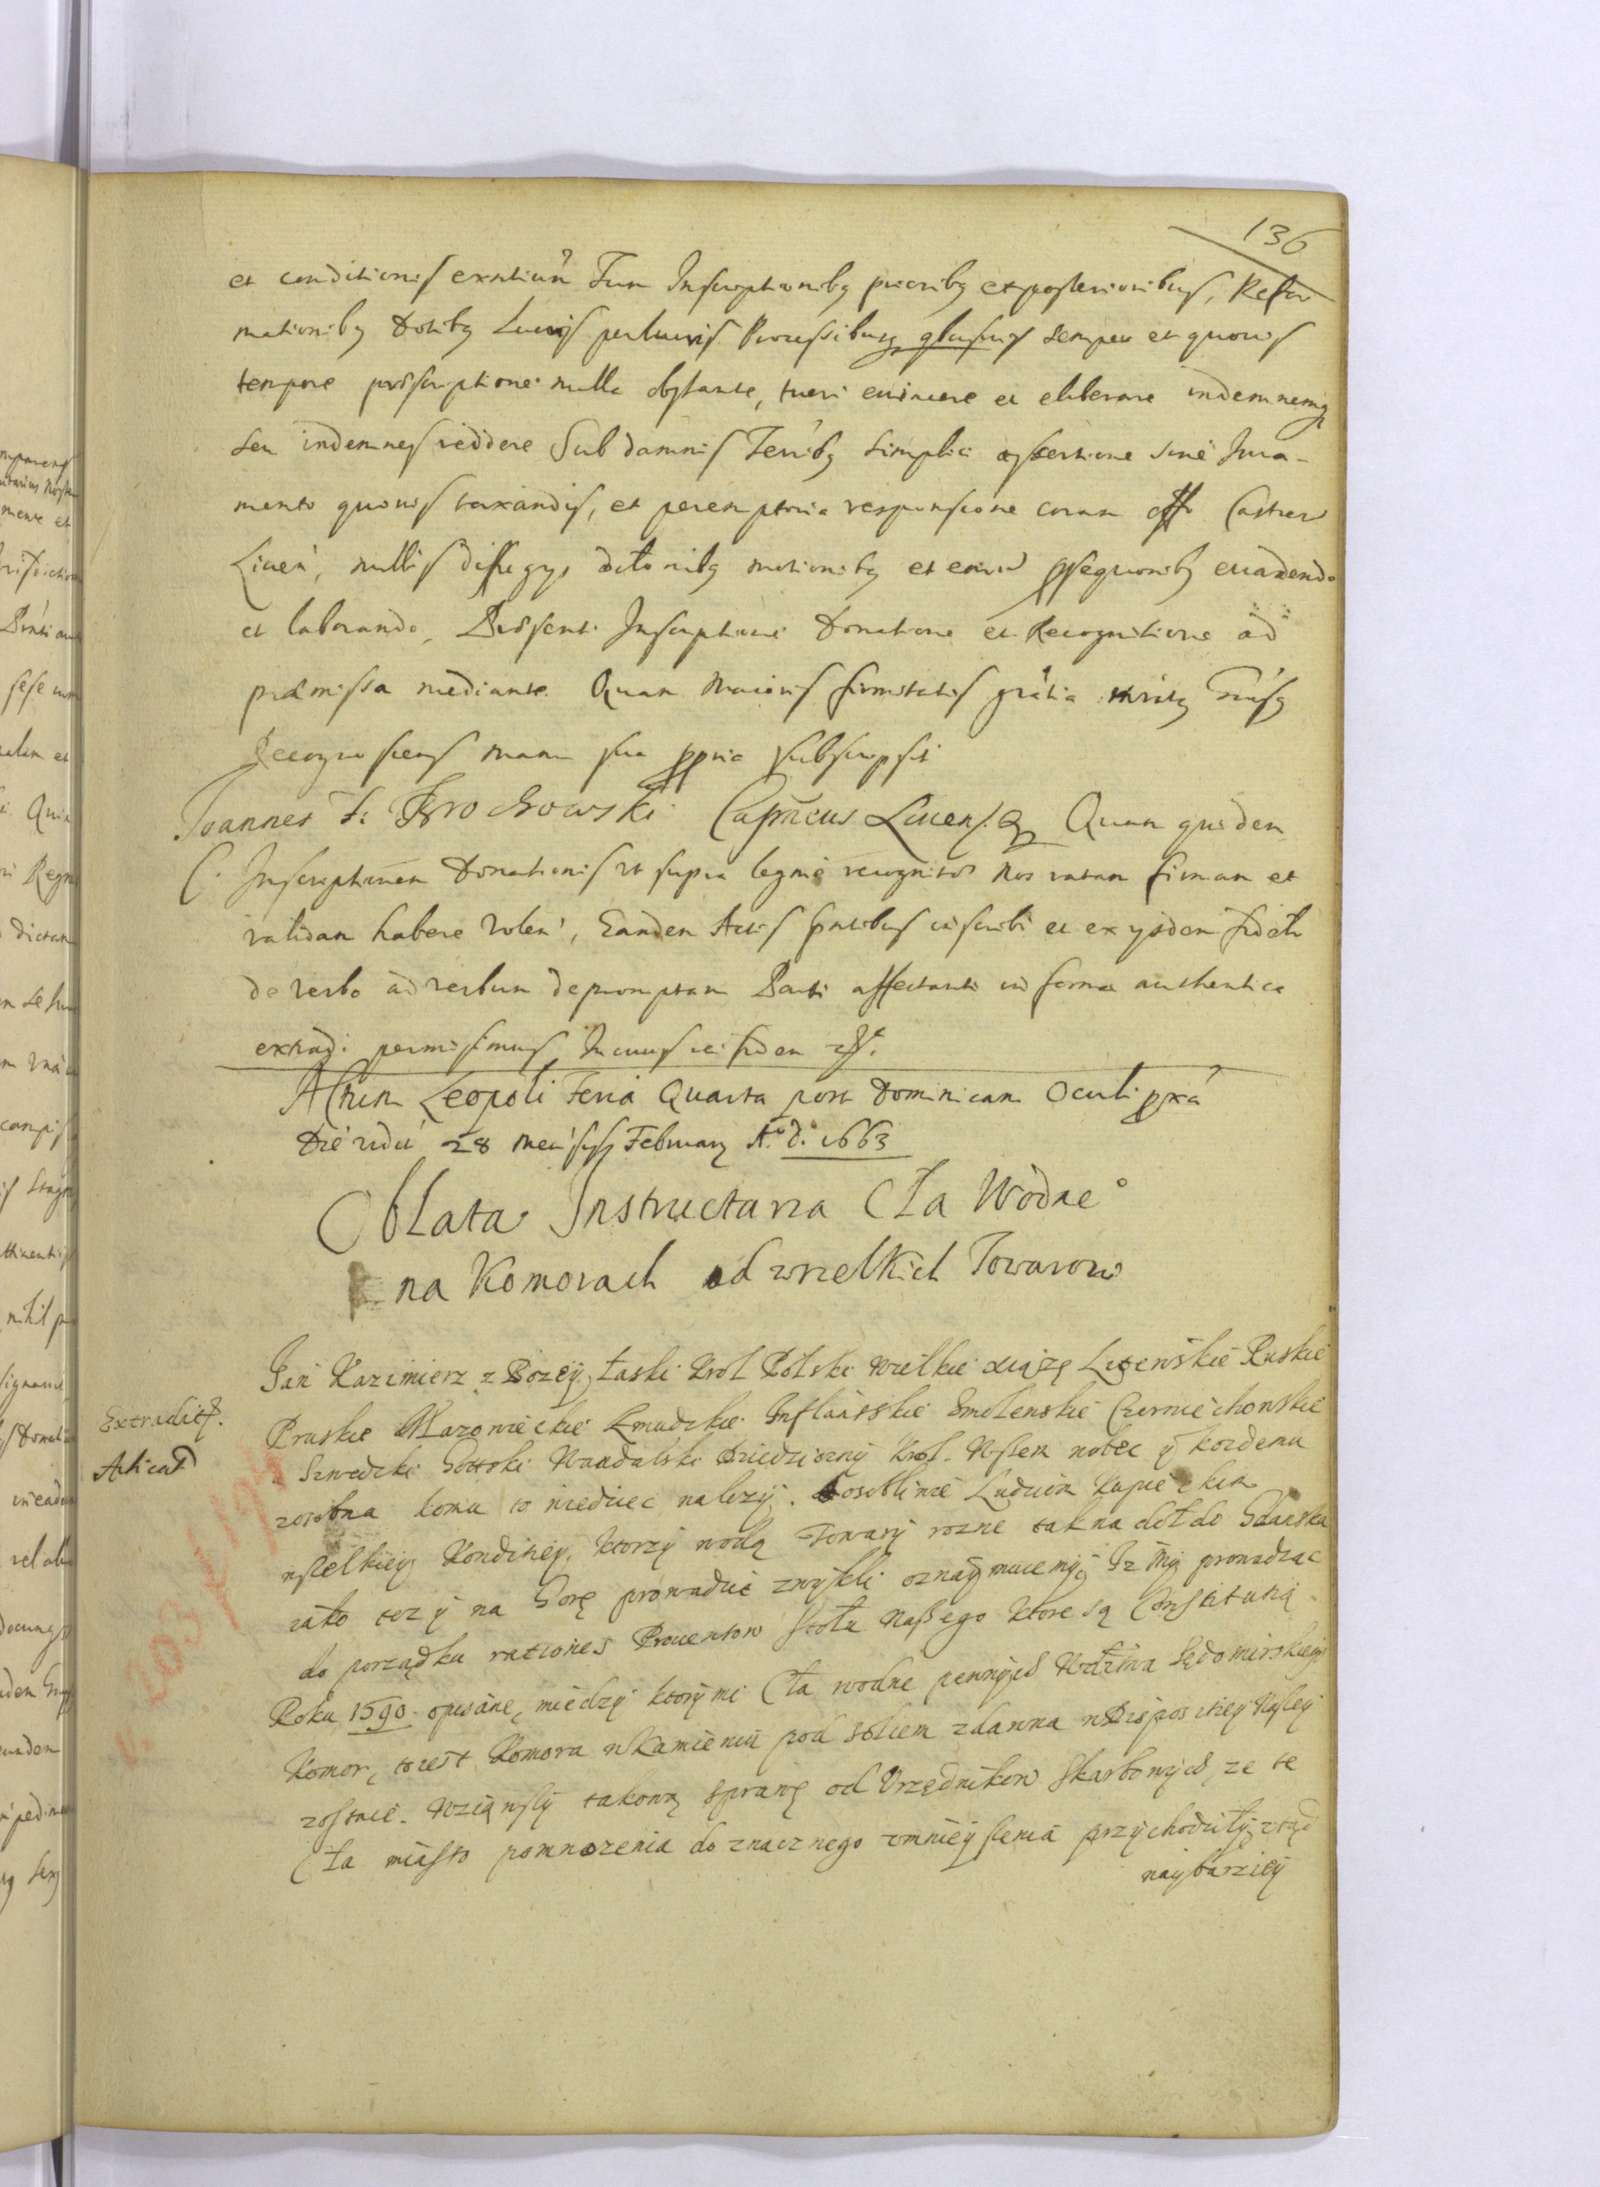 136
et conditionis existiun Tum Inscriptionibq prioribq et posterioribus, Refor
mationibq Dotibq Lucris perlucris Processibusq semper et quovis
tempore præscriptione nulla obstante, tueri evincere et eliberare indemnemq
seu indemnes reddere Sub damnis Terribq simplici assertione sine Jura-
mento quovis taxandis, et peremptoria responsione coram offo Castren
Liven, nullis diffugys dilonibq motionibq et evadendo
et laborando, Præsenti Inscriptione Donatione et Recognitione ad
præmissa mediante. Quam maioris firmitatis gratia
Recognoscens manu sua ppria subscripsit
Joannes F: Grochowski Capneus Livens. Quam quidem
Inscriptionem Donationis ut supra legme recognitam Nos ratam firmam et
validam habere volen, Eandem Actis pntibus inscribi et ex ysdem fideli
de verbo ad verbum depromptam Parti affectanti in forma authentica
extradi permisimus In cuius rei fidem
Actum Leopoli Feria Quarta post Dominicam Oculi pxa
Die vidu 28 mensis February A.o d. 1663
Oblata Instructarza Cła Wodne°
na Komorach od wszelkich Towarow
Jan Kazimierz z Bozey Łaski Krol Polski Wielkie xiążę Litewskie Ruskie
Extraditz.
Pruskie Mazowieckie Zmudzkie Inflantskie Smolenskie Czerniechowskie
Acticat
a Szwedzki Gottski Wandalski Dziedziczny Krol. Wszem wobec y kozdemu
zosobna komu to wiedziec nalezy. Aosobliwie Ludziom Kupieckim
wszelkiey Konditiey, Ktorzy wodą Towary rozne tak na doł do Gdanska
iako tez y na Gorę prowadzić zwykli oznaymuiemy, Iz my prowadząc
do porządku rationes Prouentow stołu Naßego ktore są Constitutią
Roku 1590 opisane, między ktorymi Cła wodne pewnych Wdztwa Sędomirskiego
Komor, to iest Komora w Kamieniu pod Solcem zdawna w Dispositiey Naszey
zostaie. Wziąwszy takową sprawę od Urzędnikow Skarbowych, ze te
Cła miasto pomnozenia do znacznego zmnieyszenia przychodziły, ztąd
naybarziey